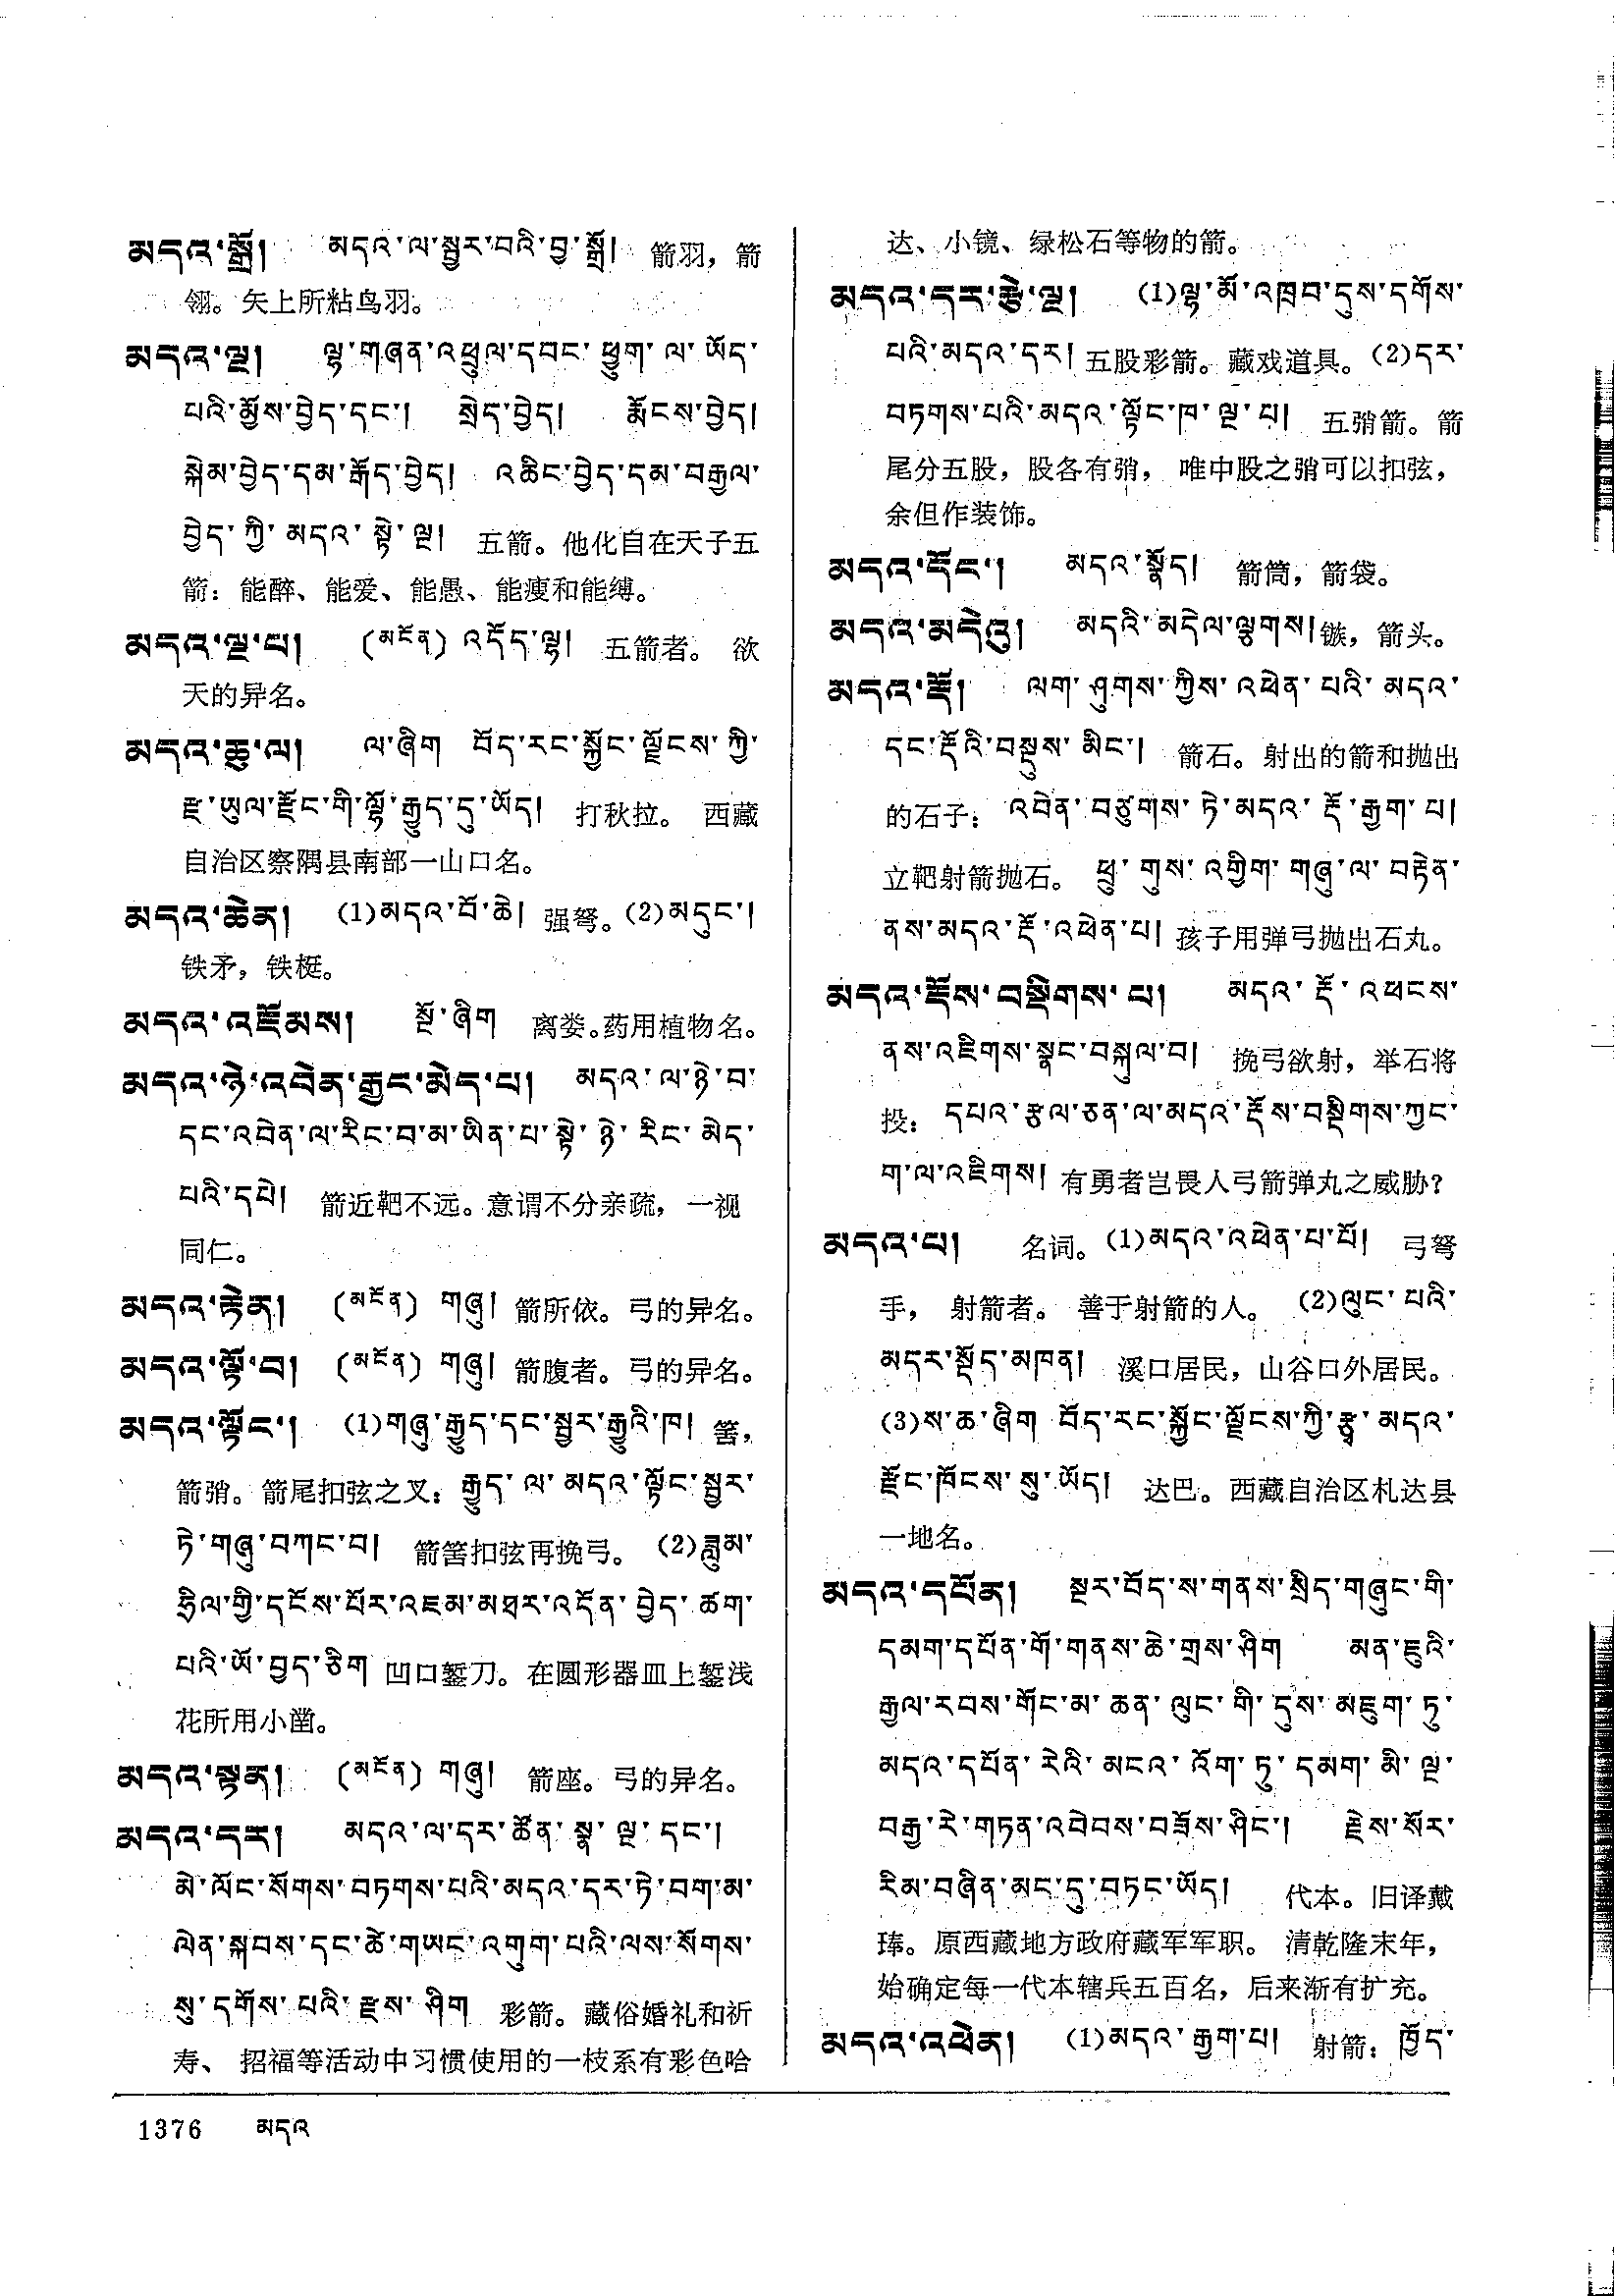 མདའ་སྒྲོ། མདའ་ལ་སྦྱར་བའི་བྱ་སྒྲོ། 箭羽，箭
翎。矢上所粘鸟羽。
མདའ་ལྔ། ལྷ་གཞན་འཕྲུལ་དབང་ཕྱུག་ལ་ཡོད་
པའི་མྱོས་བྱེད་དང་། སྲེད་བྱེད། རྨོངས་བྱེད།
སྐེམ་བྱེད་དམ་རྒོད་བྱེད། འཆིང་བྱེད་དམ་བརྒྱལ་
བྱེད་ཀྱི་མདའ་སྟེ་ལྔ། 五箭。他化自在天子五
箭：能醉、能爱、能愚、能瘦和能缚。
མདའ་ལྔ་པ། (མངོན) འདོད་ལྷ། 五箭者。 欲
天的异名。
མདའ་ཆུ་ལ། ལ་ཞིག བོད་རང་སྐྱོང་ལྗོངས་ཀྱི་
རྫ་ཡུལ་རྫོང་གི་ལྷོ་རྒྱུད་དུ་ཡོད། 打秋拉。 西藏
自治区察隅县南部一山口名。
མདའ་ཆེན། (1)མདའ་བོ་ཆེ། 强弩。(2)མདུང་།
铁矛，铁梃。
མདའ་འཇོམས། སྔོ་ཞིག 离娄。药用植物名。
མདའ་ཉེ་འབེན་རྒྱང་མེད་པ། མདའ་ལ་ཉེ་བ་
དང་འབེན་ལ་རིང་བ་མ་ཡིན་པ་སྟེ་ཉེ་རིང་མེད་
པའི་དཔེ། 箭近靶不远。意谓不分亲疏，一视
同仁。
མདའ་རྟེན། (མངོན) གཞུ། 箭所依。弓的异名。
མདའ་ལྟོ་བ། (མངོན) གཞུ། 箭腹者。弓的异名。
མདའ་ལྟོང་། (1)གཞུ་རྒྱུད་དང་སྦྱར་རྒྱུའི་ཁ། 筈，
箭弰。箭尾扣弦之叉：རྒྱུད་ལ་མདའ་ལྟོང་སྦྱར་
ཏེ་གཞུ་བཀང་བ། 箭筈扣弦再挽弓。 (2)ཟླུམ་
ཧྲིལ་གྱི་དངོས་པོར་འཇམ་མཐར་འདོན་བྱེད་ཚག་
པའི་ཡོ་བྱད་ཅིག 凹口錾刀。在圆形器皿上錾浅
花所用小凿。
མདའ་སྟན། (མངོན) གཞུ། 箭座。弓的异名。
མདའ་དར། མདའ་ལ་དར་ཚོན་སྣ་ལྔ་དང་།
མེ་ལོང་སོགས་བཏགས་པའི་མདའ་དར་ཏེ་བག་མ་
ལེན་སྐབས་དང་ཚེ་གཡང་འགུག་པའི་ལས་སོགས་
སུ་དགོས་པའི་རྫས་ཤིག 彩箭。藏俗婚礼和祈
寿、 招福等活动中习惯使用的一枝系有彩色哈
达、小镜、绿松石等物的箭。
མདའ་དར་རྩེ་ལྔ། (1)ལྷ་མོ་འཁྲབ་དུས་དགོས་
པའི་མདའ་དར། 五股彩箭。藏戏道具。(2)དར་
བཏགས་པའི་མདའ་ལྟོང་ཁ་ལྔ་པ། 五弰箭。箭
尾分五股，股各有弰， 唯中股之弰可以扣弦，
余但作装饰。
མདའ་དོང་། མདའ་སྣོད། 箭筒，箭袋。
མདའ་མདེའུ། མདའི་མདེལ་ལྕགས། 镞，箭头。
མདའ་རྡོ། ལག་ཤུགས་ཀྱིས་འཕེན་པའི་མདའ་
དང་རྡོའི་བསྡུས་མིང་། 箭石。射出的箭和抛出
的石子：འབེན་བཙུགས་ཏེ་མདའ་རྡོ་རྒྱག་པ།
立靶射箭抛石。 ཕྲུ་གུས་འགྱིག་གཞུ་ལ་བརྟེན་
ནས་མདའ་རྡོ་འཕེན་པ། 孩子用弹弓抛出石丸。
མདའ་རྡོས་བསྡིགས་པ། མདའ་རྡོ་འཕངས་
ནས་འཇིགས་སྣང་བསྐུལ་བ། 挽弓欲射，举石将
投：དཔའ་རྩལ་ཅན་ལ་མདའ་རྡོས་བསྡིགས་ཀྱང་
ག་ལ་འཇིགས། 有勇者岂畏人弓箭弹丸之威胁？
མདའ་པ། 名词。(1)མདའ་འཕེན་པ་པོ། 弓弩
手， 射箭者。 善于射箭的人。 (2)ལུང་པའི་
མདར་སྡོད་མཁན། 溪口居民，山谷口外居民。
(3)ས་ཆ་ཞིག བོད་རང་སྐྱོང་ལྗོངས་ཀྱི་རྩྭ་མདའ་
རྫོང་ཁོངས་སུ་ཡོད། 达巴。西藏自治区札达县
一地名。
མདའ་དཔོན། སྔར་བོད་ས་གནས་སྲིད་གཞུང་གི་
དམག་དཔོན་གོ་གནས་ཆེ་གྲས་ཤིག མན་ཇུའི་
རྒྱལ་རབས་གོང་མ་ཆན་ལུང་གི་དུས་མཇུག་ཏུ་
མདའ་དཔོན་རེའི་མངའ་འོག་ཏུ་དམག་མི་ལྔ་
བརྒྱ་རེ་གཏན་འབེབས་བཟོས་ཤིང་། རྗེས་སོར་
རིམ་བཞིན་མང་དུ་བཏང་ཡོད། 代本。旧译戴
琫。原西藏地方政府藏军军职。 清乾隆末年，
始确定每一代本辖兵五百名，后来渐有扩充。
མདའ་འཕེན། (1)མདའ་རྒྱག་པ། 射箭：ཁྱོད་
1376 མདའ